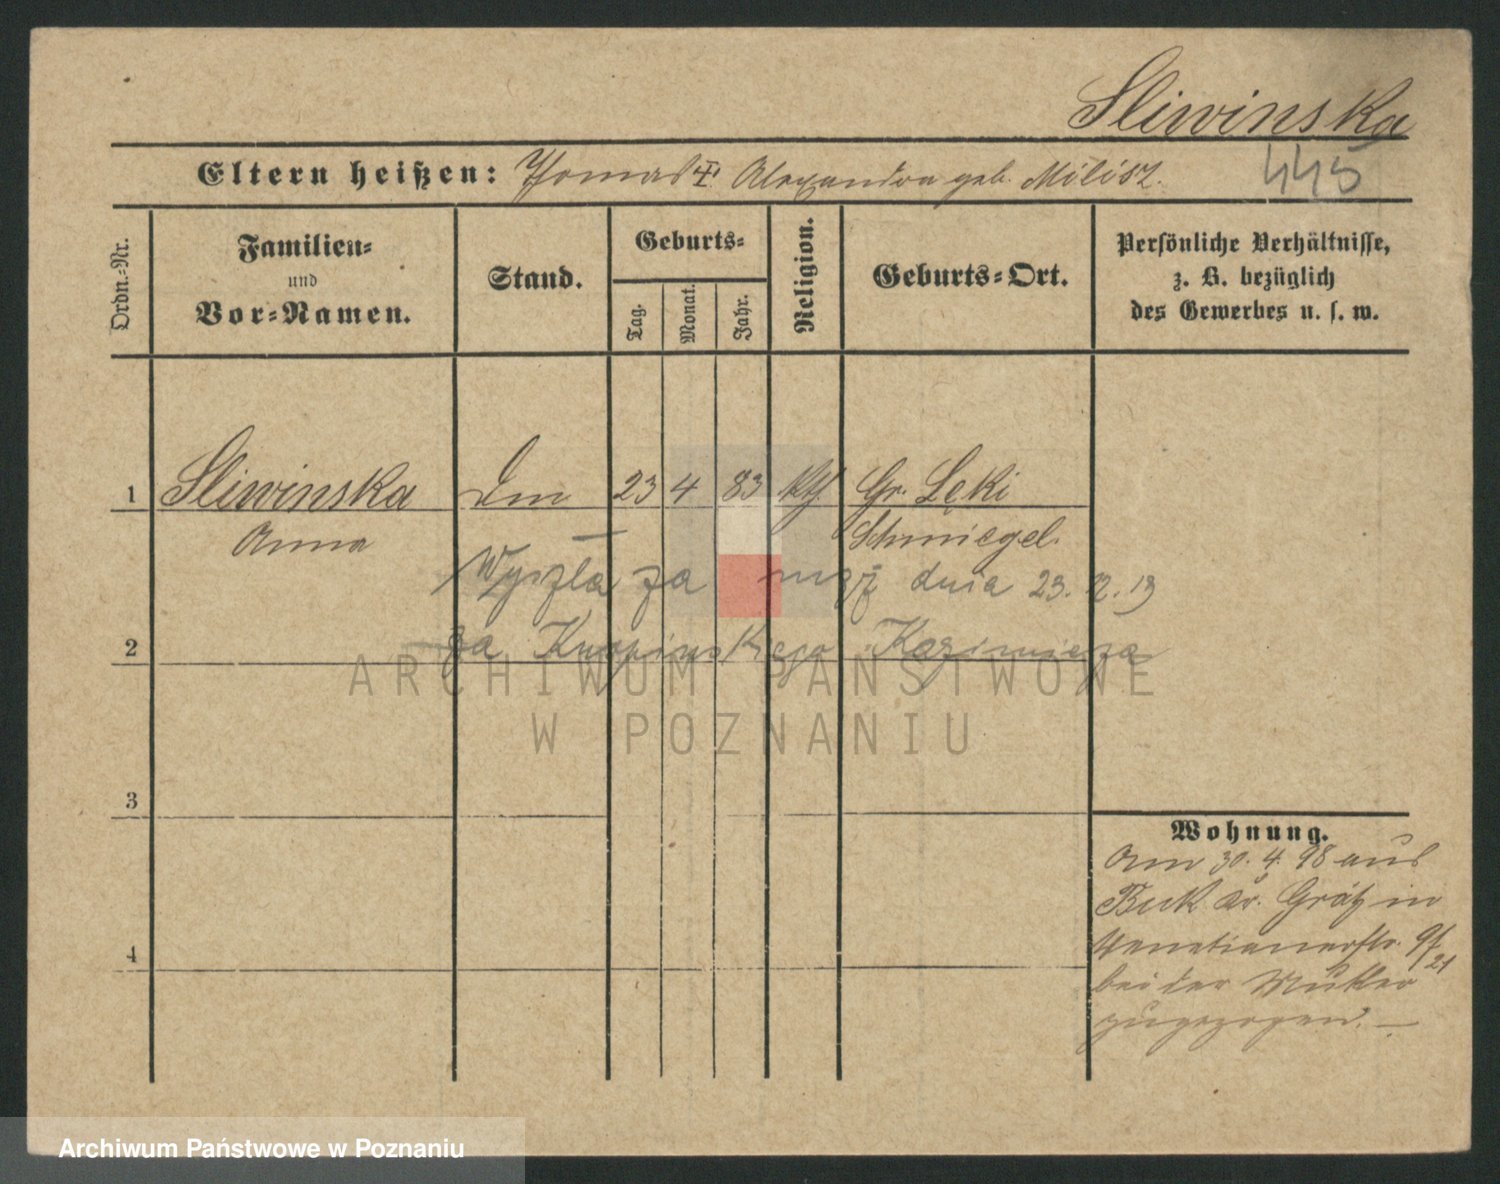 Sliwinska
Eltern heißen: Thomas Alexandra geb. Milisz.
445
Ordn.-Nr.
Familien-
und
Vor-Namen.
Stand.
Geburts-
Tag.
Monat.
Jahr.
Religion.
Geburts-Ort.
Persönliche Verhältnisse,
z. B. bezüglich
des Gewerbes u. s. w.
1 Sliwinska 23 4 83 kth Gr. Lęki
Anna Schmiegel.
Wyszła za mąż dnia 23. 12. 13
2 za Kazimierza
3
4
Wohnung.
Am 30. 4. 98 aus
Buk Kr. Grätz in
Venetianerstr. 9/21
bei der Mutter
zugezogen. —
ARCHIWUM PAŃSTWOWE
W POZNANIU
Archiwum Państwowe w Poznaniu